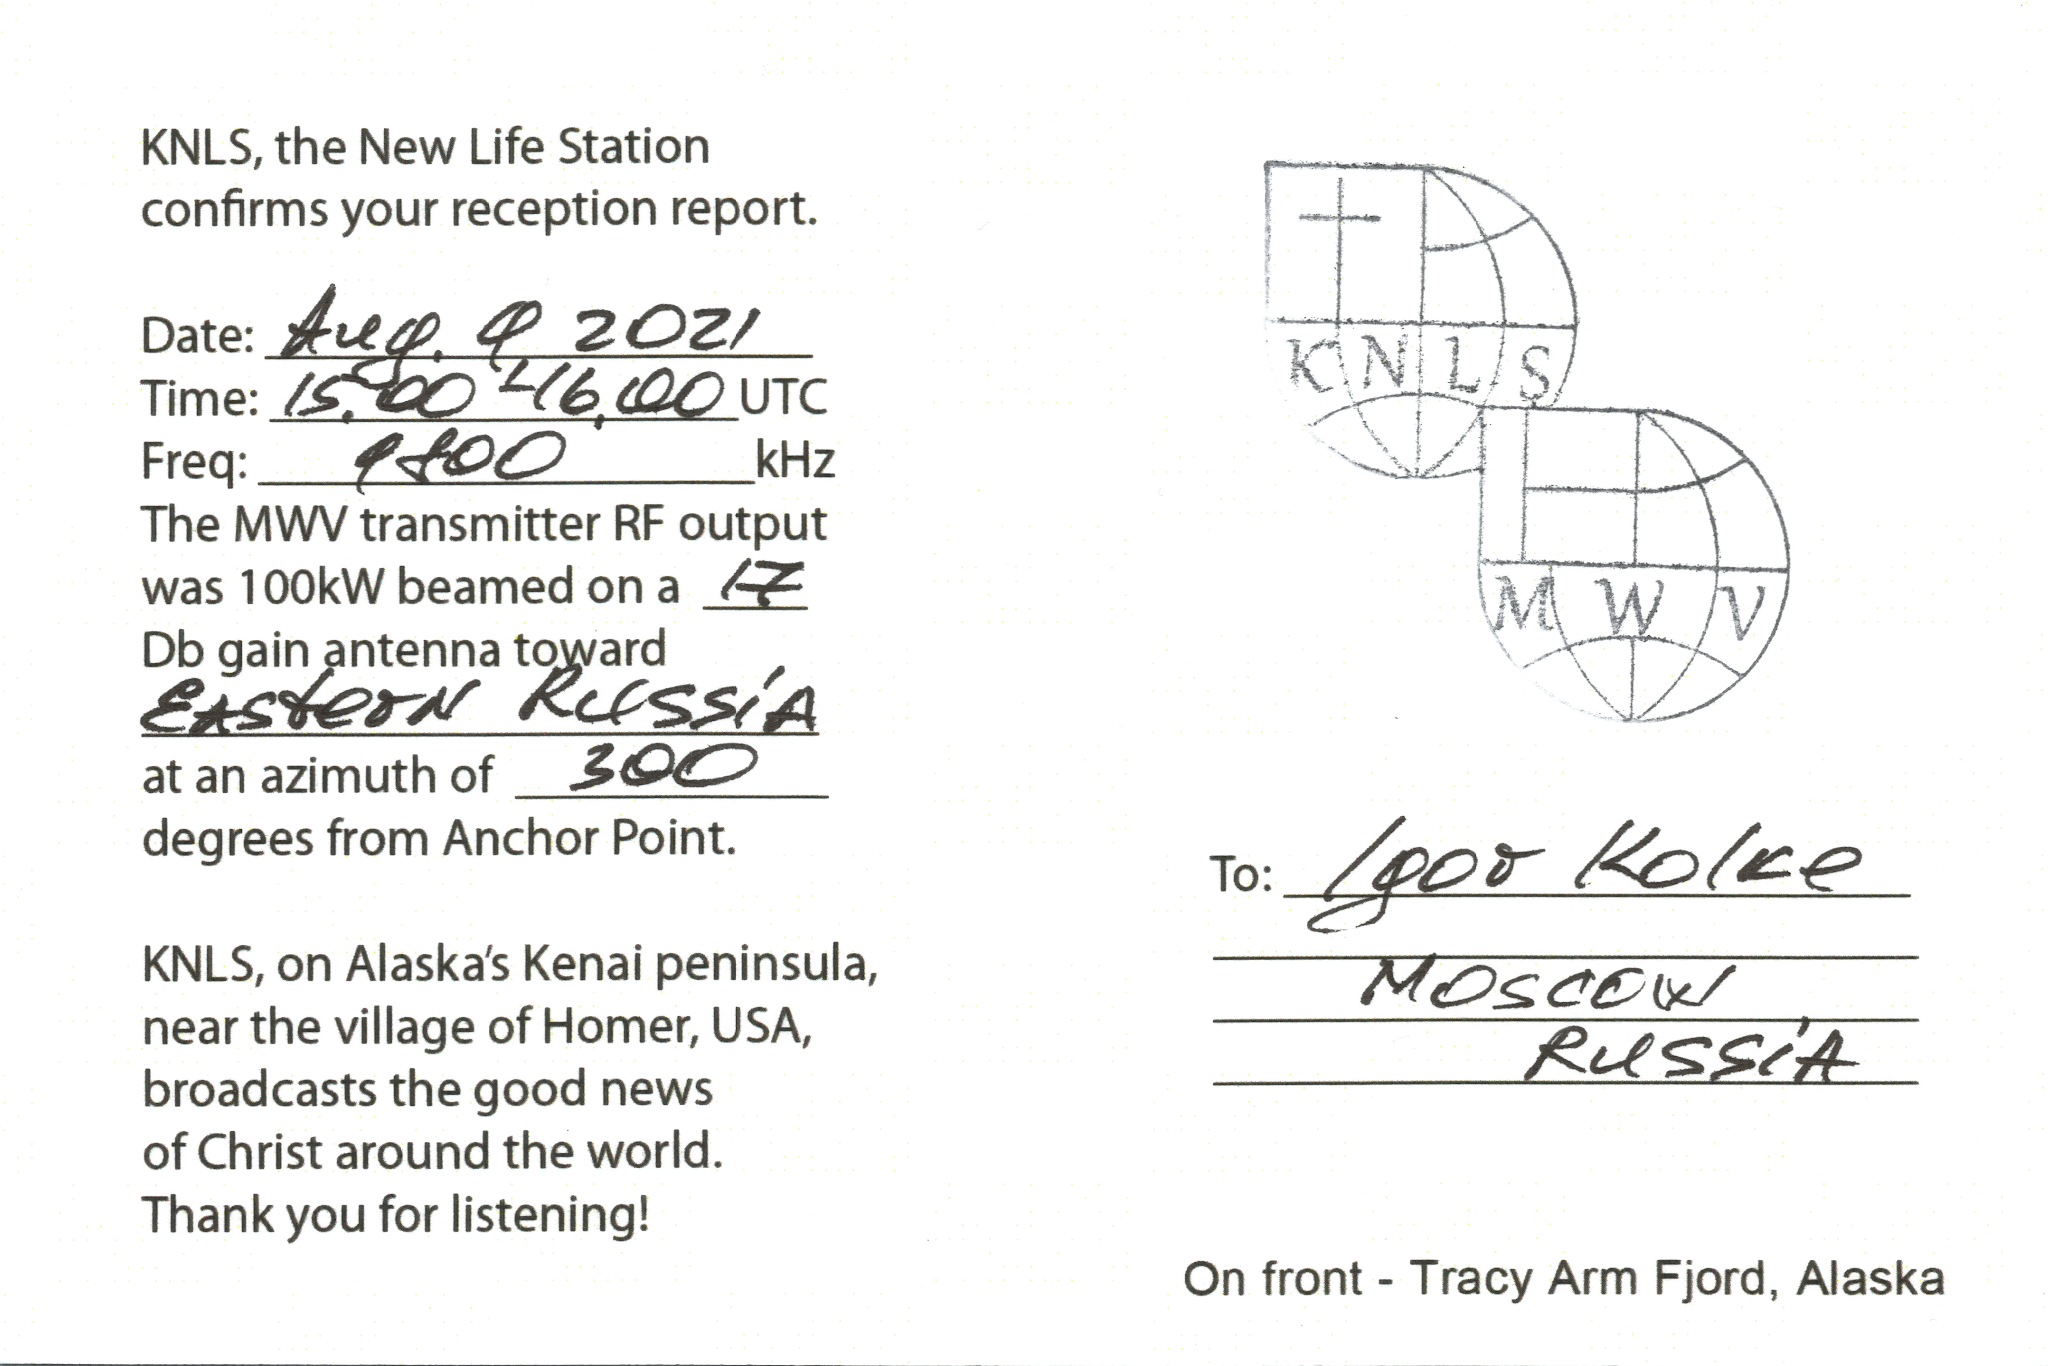 KNLS, the New Life Station
confirms your reception report.
Date: Aug. 9 2021
Time: 15:00 - 16,00 UTC
Freq: kHz
The MWV transmitter RF output
was 100kW beamed on a 17
Db gain antenna toward
EASTERN RUSSIA
at an azimuth of 300
degrees from Anchor Point.
KNLS, on Alaska's Kenai peninsula,
near the village of Homer, USA,
broadcasts the good news
of Christ around the world.
Thank you for listening!
KNLS
MWV
To: Igor Kolke
MOSCOW
RUSSIA
On front - Tracy Arm Fjord, Alaska